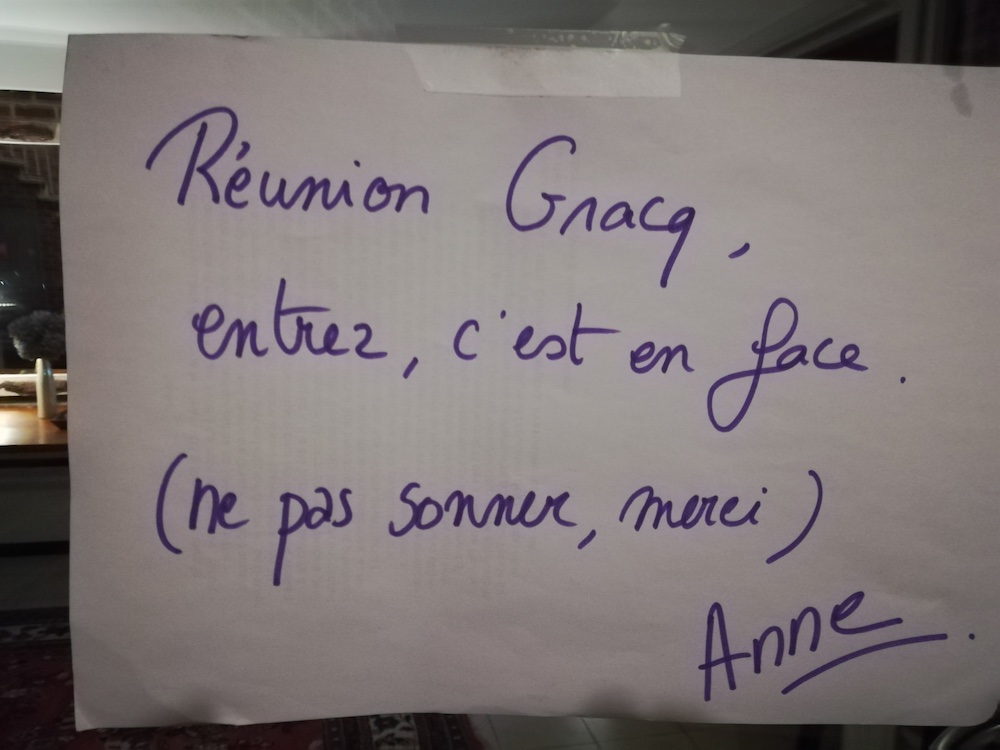 Réunion Gracq,
entrez, c'est en face.
(ne pas sonner, merci)
Anne.